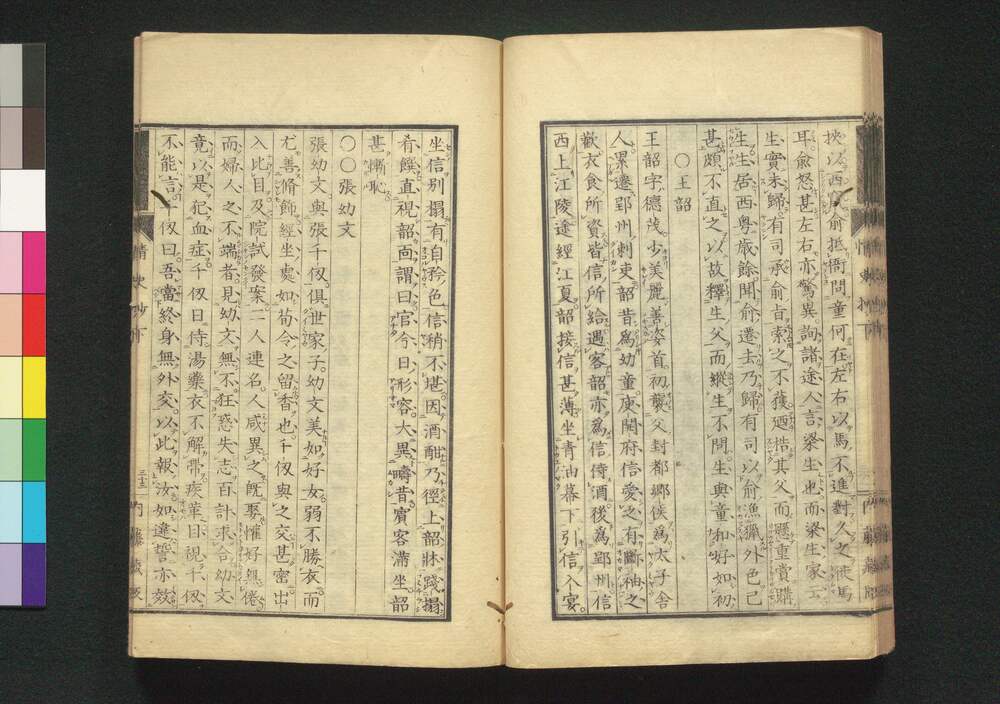 挾以西俞抵衙問童何在左右以馬不進對久之從馬
耳俞怒甚左右亦驚異詢諸途人言梁生也而梁生家云
生實未歸有司承俞旨索之不獲廼梏其父而懸重賞購
生生居西粤歲餘聞俞遷去乃歸有司以俞漁獵外色已
甚頗不直之以故釋生父而縱生不問生與童和好如初
〇王韶
王韶字德茂少美麗善姿首初襲父封都鄉侯爲太子舍
人累遷郢州刺史韶昔爲幼童庾開府信愛之有斷袖之
歡衣食所資皆信所給遇客韶亦爲信侍酒後爲郢州信
西上江陵途經江夏韶接信甚薄坐青油幕下引信入宴
坐信別榻有自矜色信稍不堪因酒酣乃徑上韶牀踐榻
肴饌直視韶面謂曰官今日形容大異疇昔賓客滿坐韶
甚慚恥
〇〇張幼文
張幼文與張千仭俱世家子幼文美如好女弱不勝衣而
尤善脩飾經坐處如荀令之留香也千仭與之交甚密出
入比目及院試發案二人連名人咸異之既娶懽好無倦
而婦人之不端者見幼文無不狂惑失志百計求合幼文
竟以是犯血症千仭日侍湯藥衣不解帶疾革目視千仭
不能言千仭曰吾當終身無外交以此報汝如違誓亦效
情史抄下